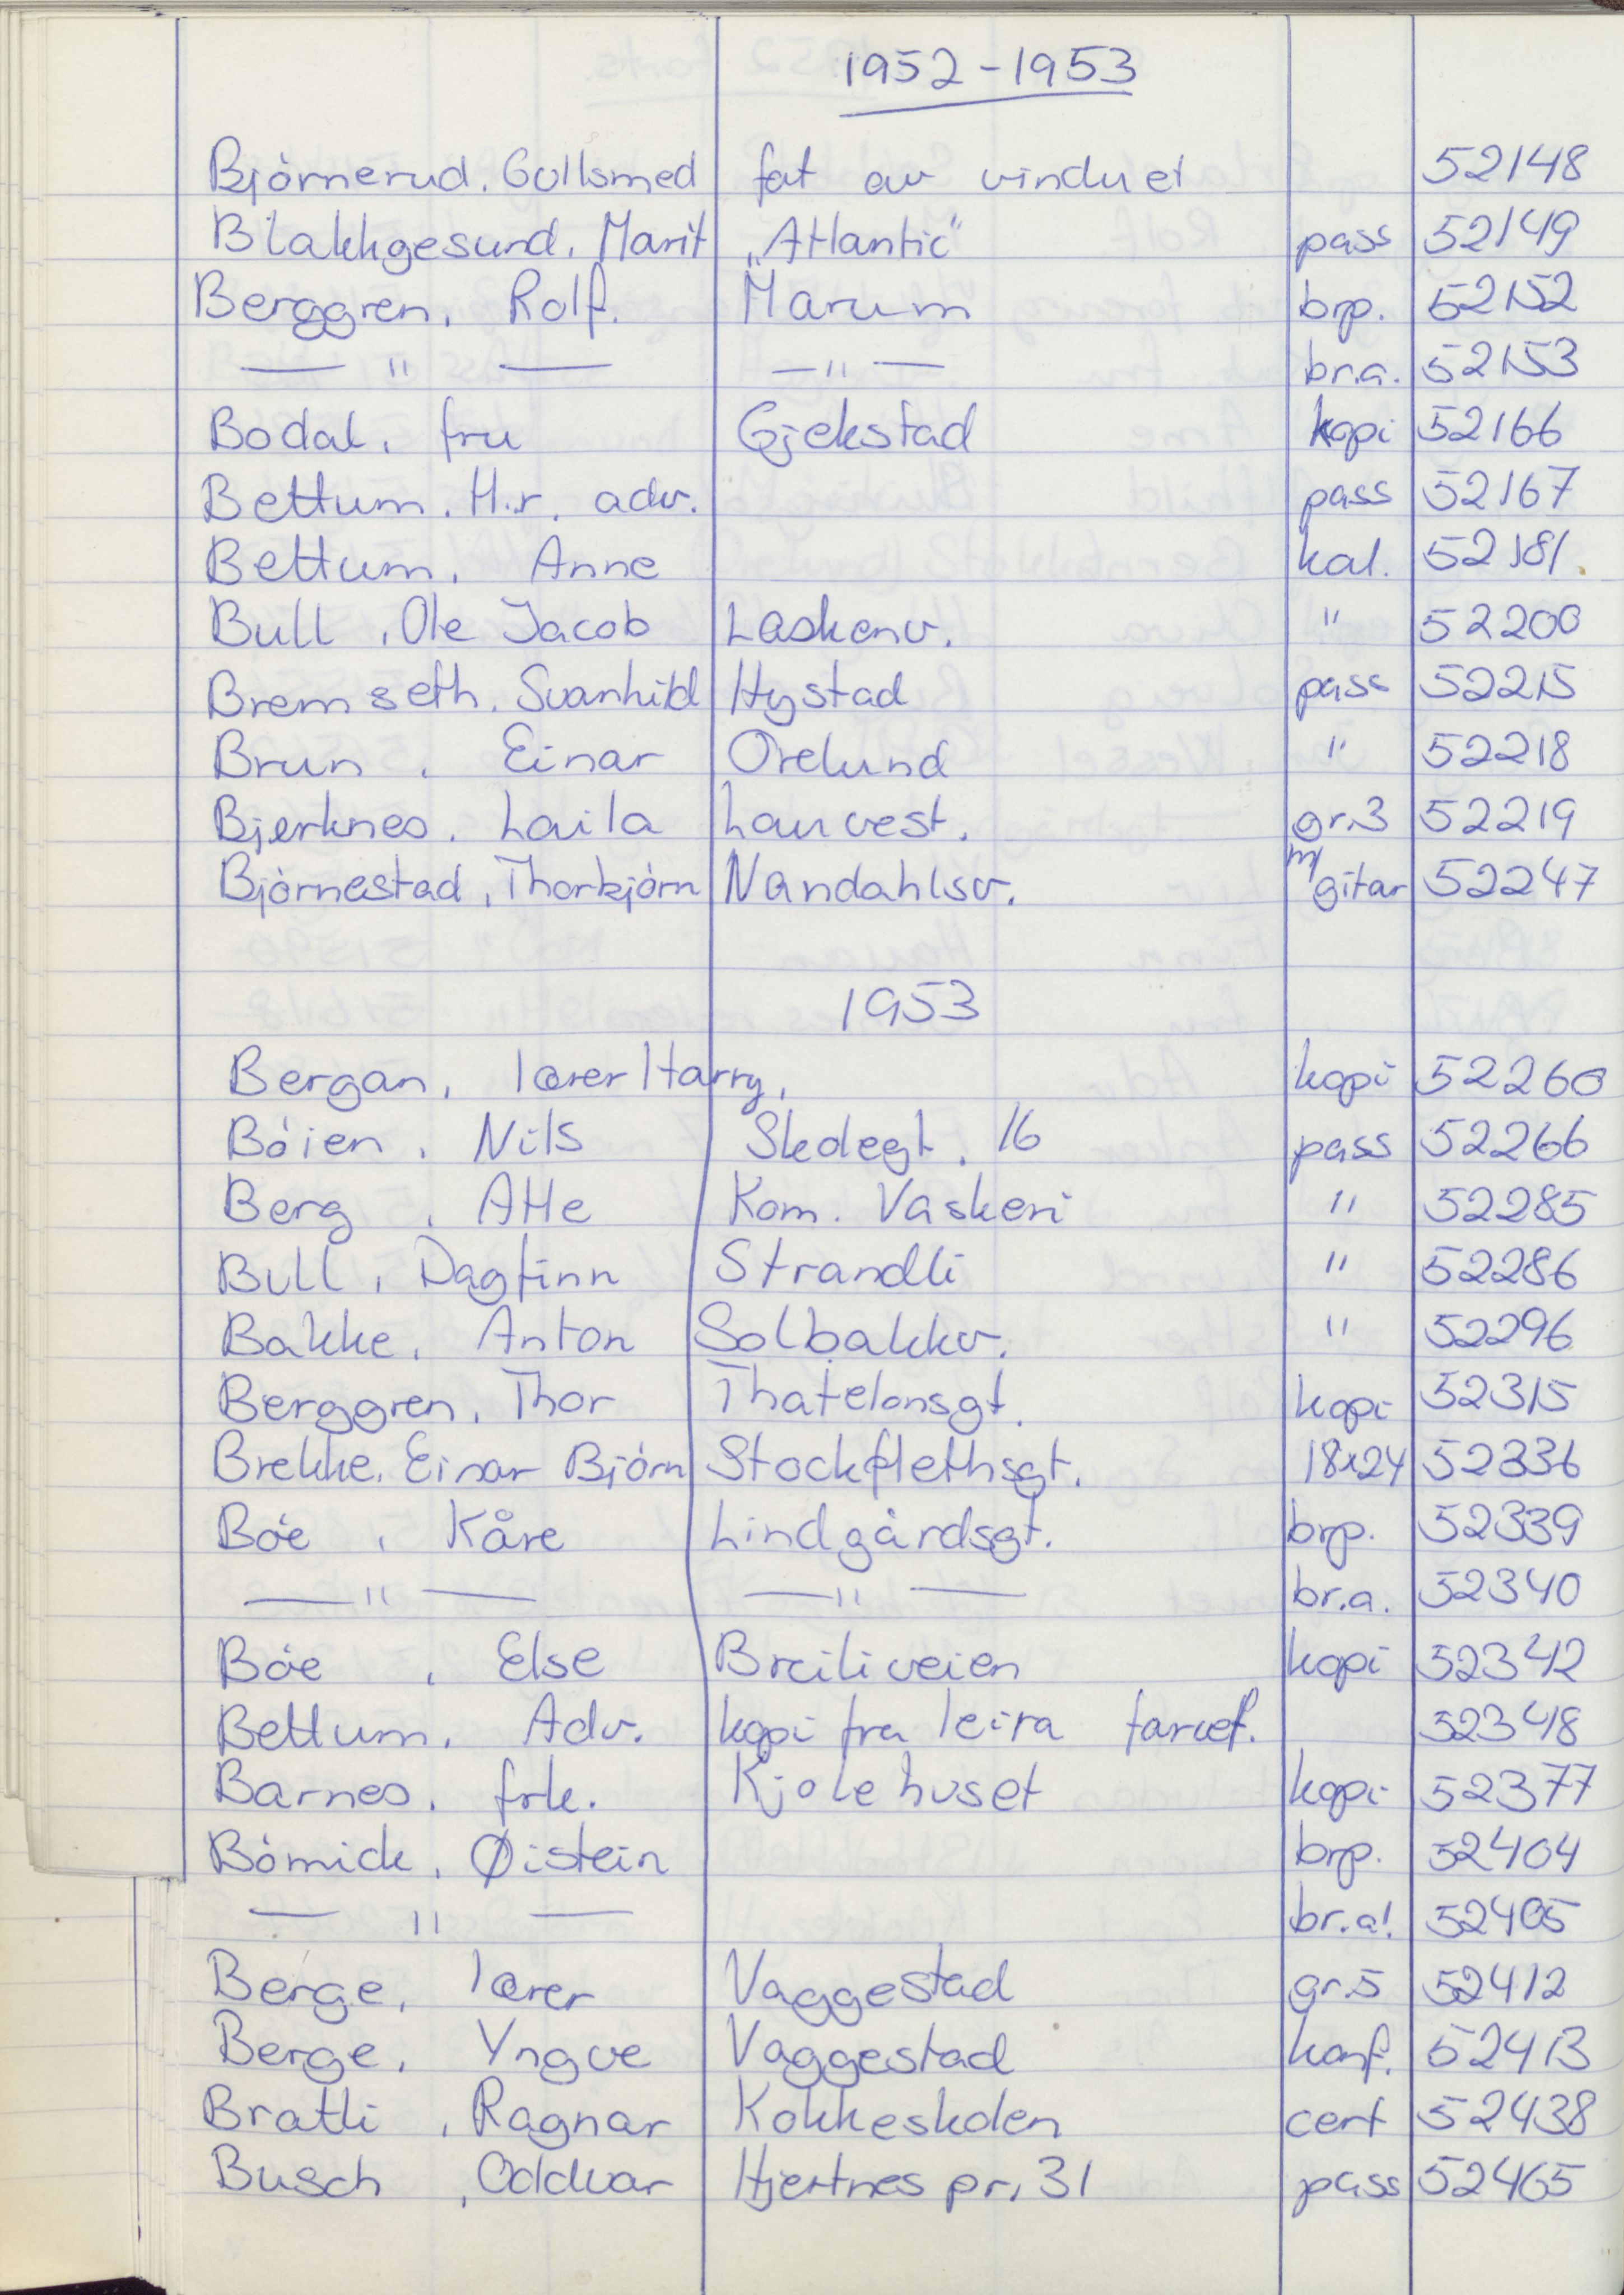 1952-1953
Bjørnerud. Gullsmed fat av vinduet 52148
Blakkgesund. Marit "Atlantic" pass 52149
Berggren. Rolf. Marum brp. 52152
— " — — " — br.a. 52153
Bodal. fru Gjekstad kopi 52166
Bettum. H.r. adv. pass 52167
Bettum. Anne kal. 52181.
Bull. Ole Jacob Laskenv. " 52200
Bremseth. Svanhild Hystad pass 52215
Brun. Einar Orelund " 52218
Bjerknes. Laila Lauvest. gr.3 52219
Bjørnestad. Thorbjørn Nandahlsv. m/ gitar 52247
1953
Bergan. lærer Harry. kopi 52260
Bøien. Nils Skolegt. 16 pass 52266
Berg. Atle Kom. Vaskeri " 52285
Bull. Dagfinn Strandli " 52286
Bakke. Anton Solbakkv. " 52296
Berggren. Thor Thaulonsgt. kopi 52315
Brekke. Einar Bjørn Stockflethsgt. 18x24 52336
Bøe. Kåre Lindgårdsgt. brp. 52339
— " — — " — br.a. 52340
Bøe. Else Breiliveien kopi 52342
Bettum. Adv. kopi fra leira 52348
Barnes. frk. Kjolehuset kopi 52377
Bømick. Øistein brp. 52404
— " — br.a! 52405
Berge. lærer Vaggestad gr.5 52412
Berge. Yngve Vaggestad konf. 52413
Bratli. Ragnar Kokkeskolen cert 52438
Busch. Oddvar Hjertnes pr. 31 pass 52465